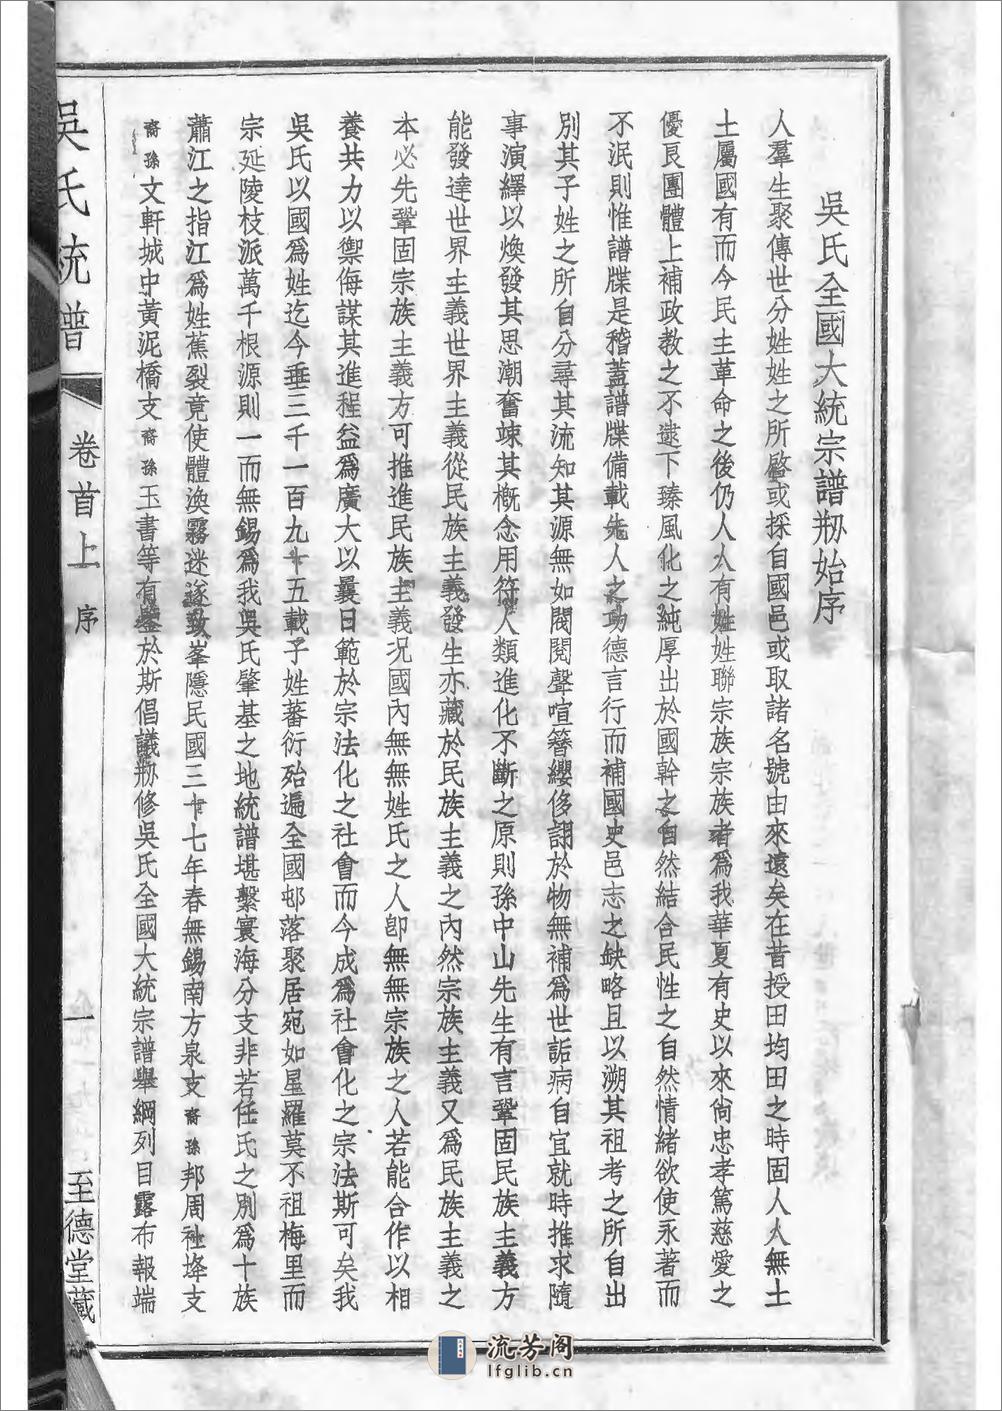 吳氏全國大統宗譜刱始序
人羣生聚傳世分姓姓之所啓或採自國邑或取諸名號由來遠矣在昔授田均田之時固人人無土
土屬國有而今民主革命之後仍人人有姓姓聯宗族宗族者爲我華夏有史以來尙忠孝篤慈愛之
優良團體上補政教之不逮下臻風化之純厚出於國幹之自然結合民性之自然情緒欲使永著而
不泯則惟譜牒是稽蓋譜牒備載先人之功德言行而補國史邑志之缺略且以溯其祖考之所自出
別其子姓之所自分尋其流知其源無如閥閱聲喧簪纓侈詡於物無補爲世詬病自宜就時推求隨
事演繹以煥發其思潮奮竦其概念用符人類進化不斷之原則孫中山先生有言鞏固民族主義方
能發達世界主義世界主義從民族主義發生亦藏於民族主義之內然宗族主義又爲民族主義之
本必先鞏固宗族主義方可推進民族主義況國內無無姓氏之人卽無無宗族之人若能合作以相
養共力以禦侮謀其進程益爲廣大以曩日範於宗法化之社會而今成爲社會化之宗法斯可矣我
吳氏以國爲姓迄今垂三千一百九十五載子姓蕃衍殆遍全國邨落聚居宛如星羅莫不祖梅里而
宗延陵枝派萬千根源則一而無錫爲我吳氏肇基之地統譜堪繫寰海分支非若任氏之別爲十族
蕭江之指江爲姓蕉裂竟使體渙霧迷遂致峯隱民國三十七年春無錫南方泉支裔孫邦周社垾支
裔孫文軒城中黃泥橋支裔孫玉書等有鑒於斯倡議刱修吳氏全國大統宗譜舉綱列目露布報端
吳氏統譜
卷首上
序
一
至德堂藏
流芳阁
lfglib.cn